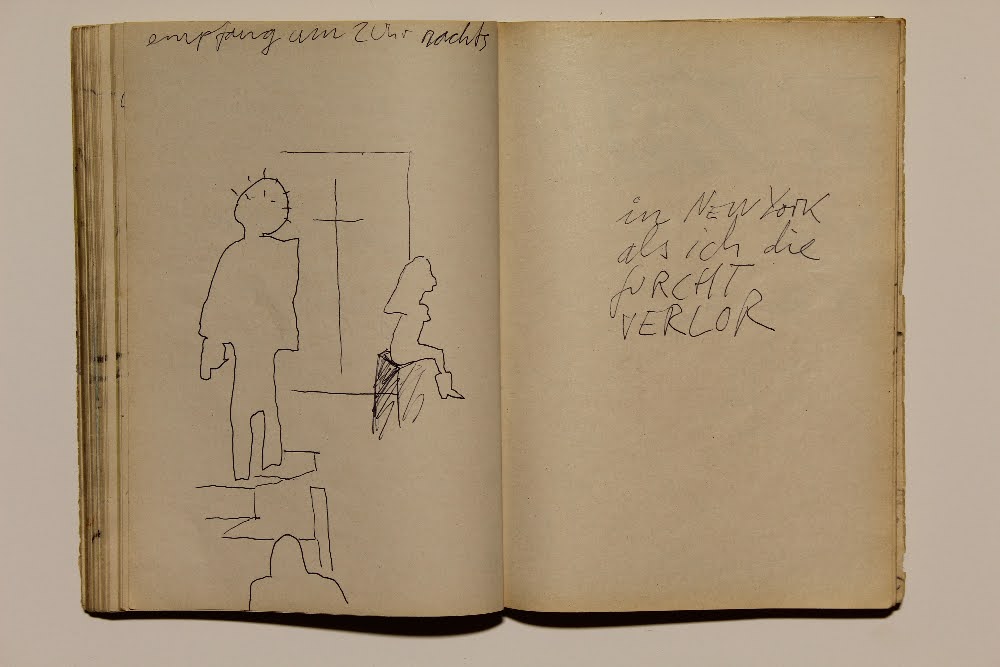 empfang um 2 Uhr nachts
in NEW YORK
als ich die
FURCHT
VERLOR